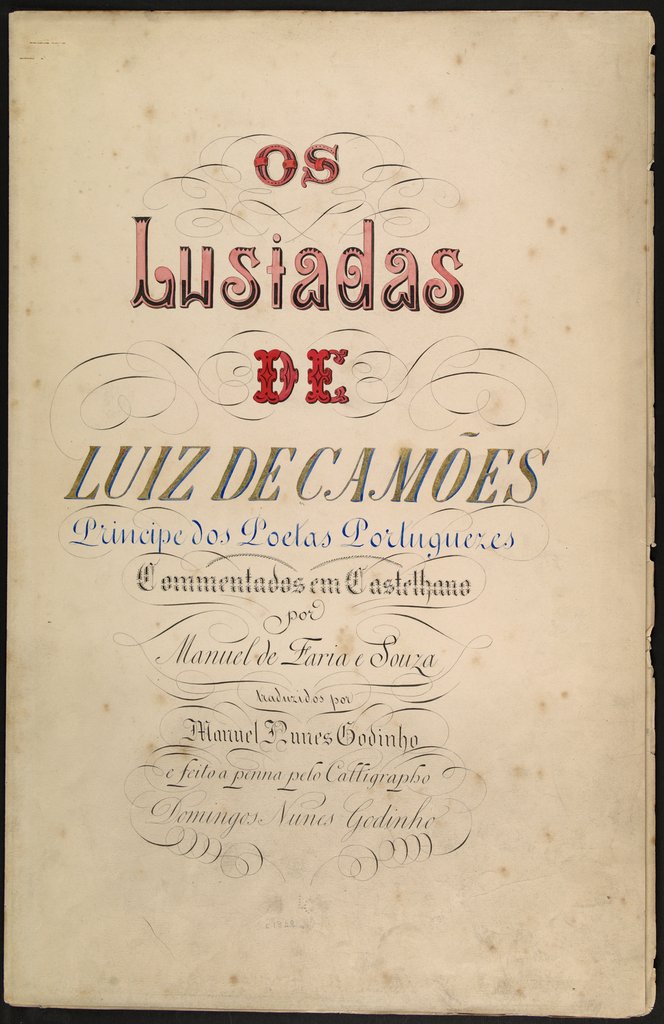 OS
Lusiadas
DE
LUIZ DE CAMÕES
Principe dos Poetas Portuguezes
Commentados em Castelhano
por
Manuel de Faria e Souza
traduzidos por
Manuel Nunes Godinho
e feito a penna pelo Calligrapho
Domingos Nunes Godinho